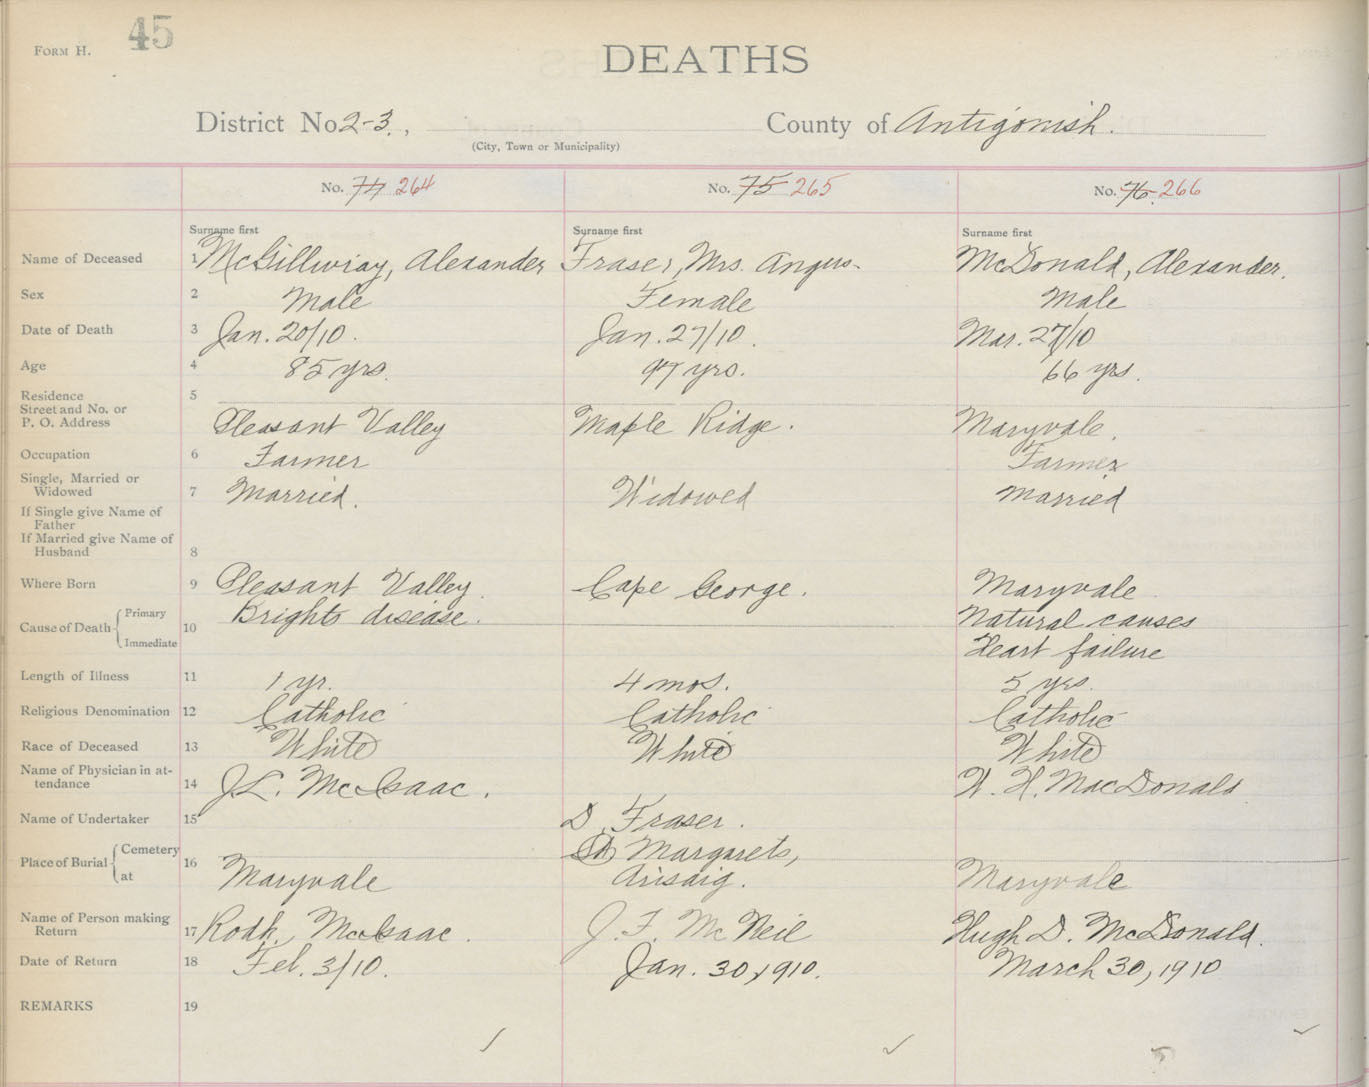 FORM H.
45
DEATHS
District No 2-3.,
County of Antigonish.
(City, Town or Municipality)
No. 74 264
No. 75 265
No. 76. 266
Surname first
Surname first
Surname first
Name of Deceased 1 McGillivray, Alexander Fraser, Mrs. Angus. McDonald, Alexander.
Sex 2 Male Female Male
Date of Death 3 Jan. 20/10. Jan. 27/10. Mar. 27/10
Age 4 85 yrs. 97 yrs. 66 yrs.
Residence 5
Street and No. or
P. O. Address Pleasant Valley Maple Ridge. Maryvale.
Occupation 6 Farmer Farmer
Single, Married or
Widowed 7 Married. Widowed Married
If Single give Name of
Father
If Married give Name of
Husband 8
Where Born 9 Pleasant Valley. Cape George. Maryvale
Cause of Death { Primary 10 Brights disease. Natural causes
Immediate Heart failure
Length of Illness 11 1 yr. 4 mos. 5 yrs.
Religious Denomination 12 Catholic Catholic Catholic
Race of Deceased 13 White White White
Name of Physician in at-
tendance 14 J.L. McIsaac. W. H. MacDonald
Name of Undertaker 15 D. Fraser.
Place of Burial { Cemetery 16 St Margarets,
at Maryvale Arisaig. Maryvale
Name of Person making
Return 17 Rodk. McIsaac. J. F. McNeil Hugh D. McDonald.
Date of Return 18 Feb. 3/10. Jan. 30, 1910. March 30, 1910
REMARKS 19